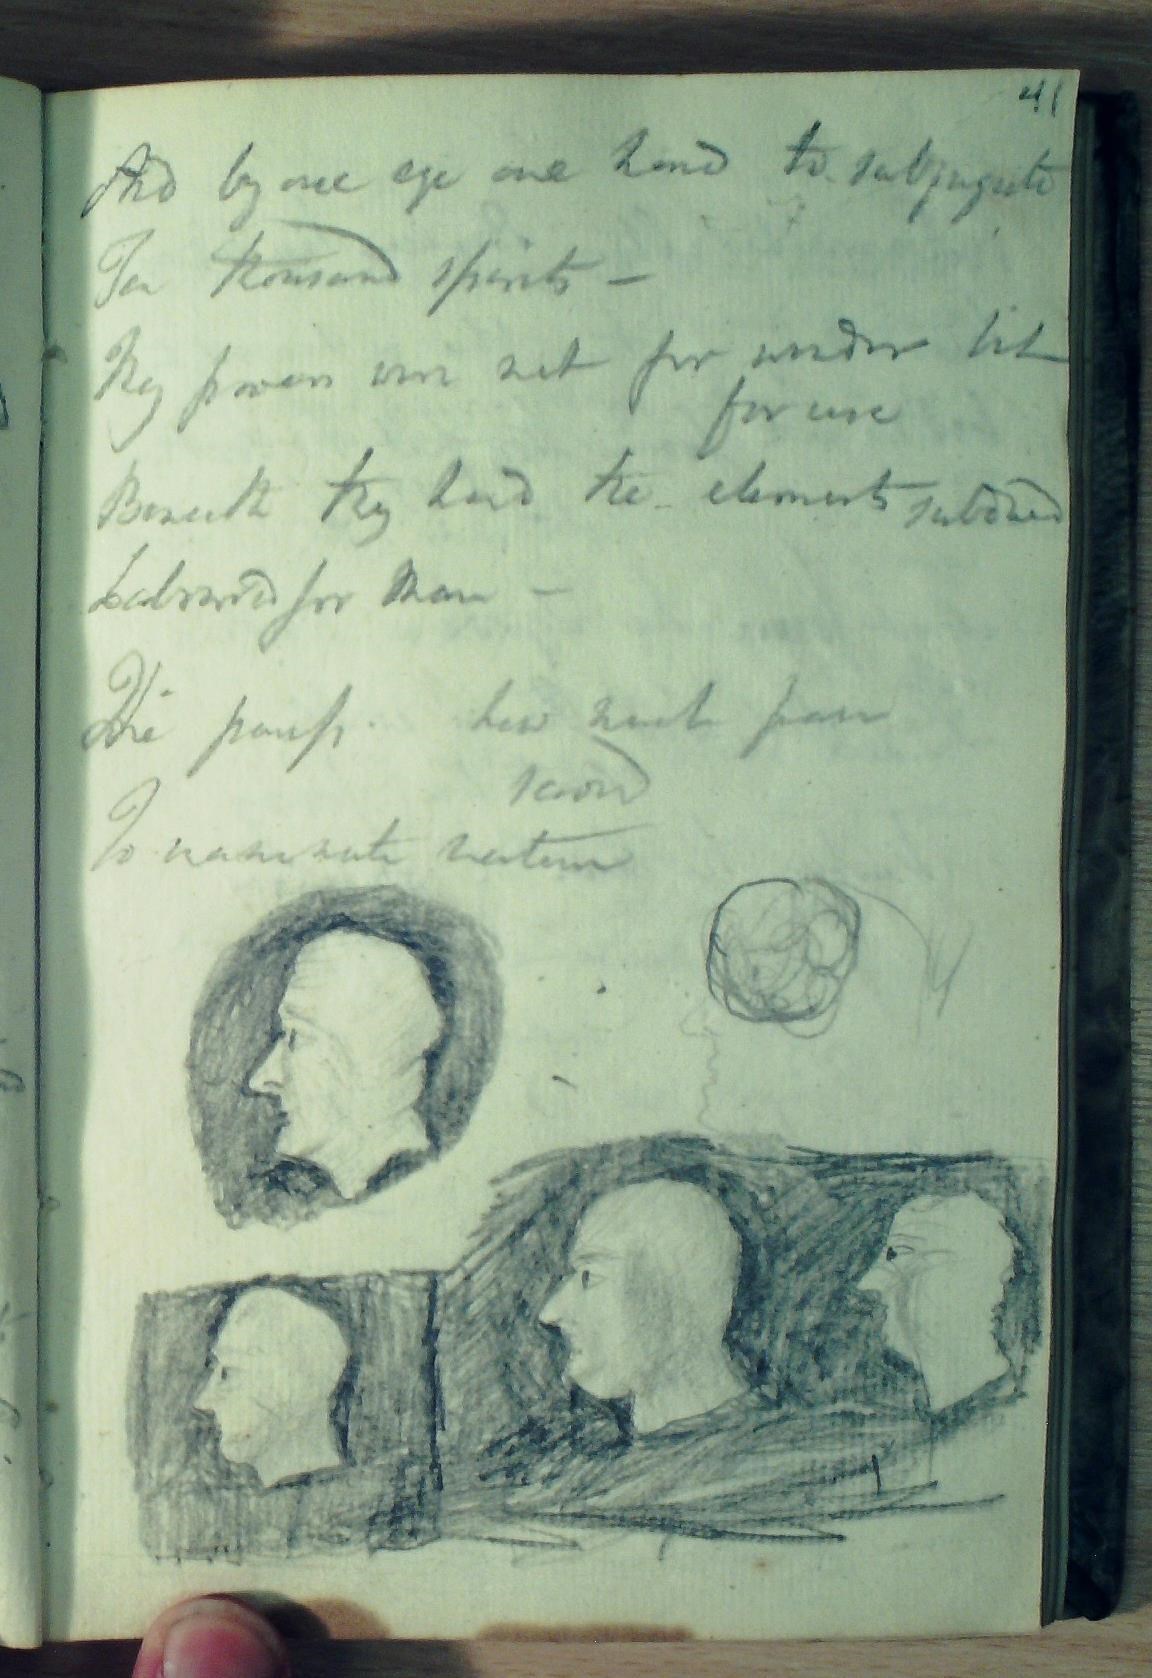 41
And by one eye one hand to subjugate
Ten thousand spirits —
Thy powers were not for wonder but
for use
Beneath thy hand the elements subdued
Labourd for Man —
The how next
To nature